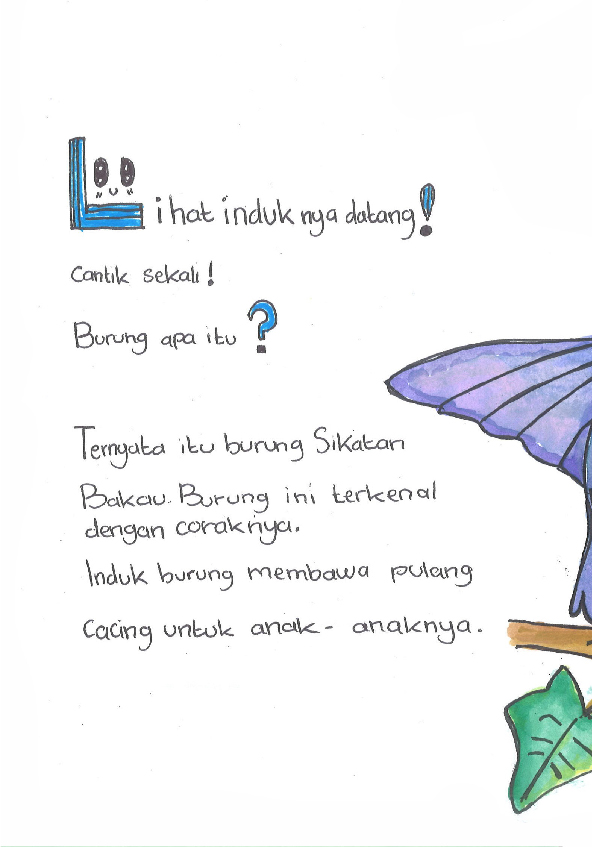 Lihat induknya datang!
Cantik sekali!
Burung apa itu?
Ternyata itu burung Sikatan
Bakau. Burung ini terkenal
dengan coraknya.
Induk burung membawa pulang
Cacing untuk anak-anaknya.